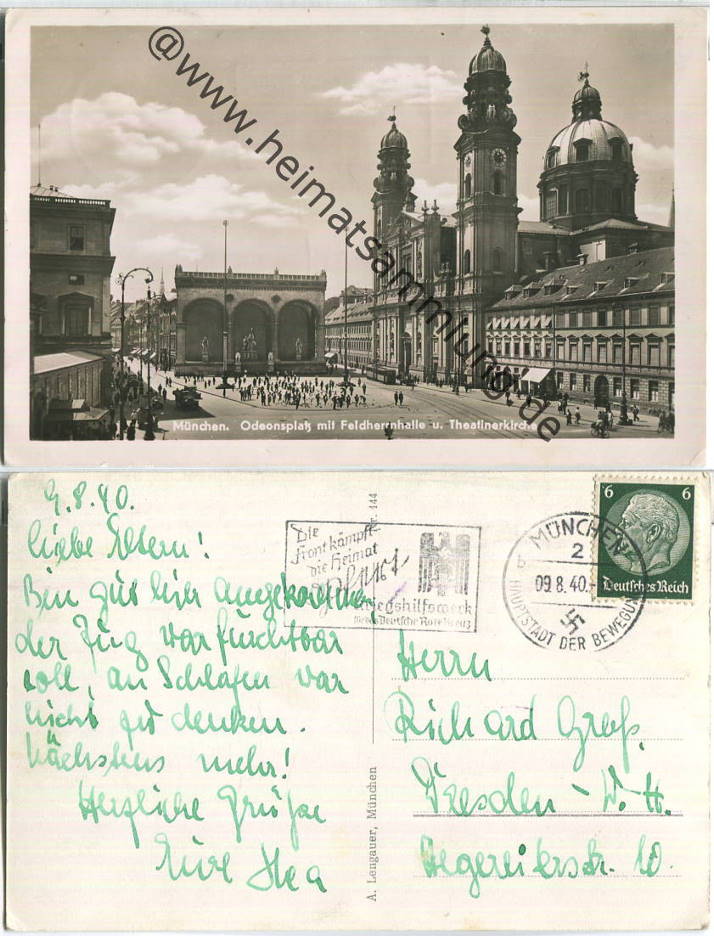 @www.heimatsammlung.de
München. Odeonsplatz mit Feldherrnhalle u. Theatinerkirche
9.8.40.
Liebe Eltern!
Bin gut hier angekommen
der Zug war furchtbar
voll, an Schlafen war
nicht zu denken.
Nächstens mehr!
Herzliche Grüße
Eure Thea
Nr. 144
A. Lengauer, München
Die
Front kämpft
die Heimat
opfert
Kriegshilfswerk
für das Deutsche Rote Kreuz
MÜNCHEN
2
b
09.8.40.
HAUPTSTADT DER BEWEGUNG
6 6
Deutsches Reich
Herrn
Richard Groß,
Dresden - W. H.
Degereierstr. 10.